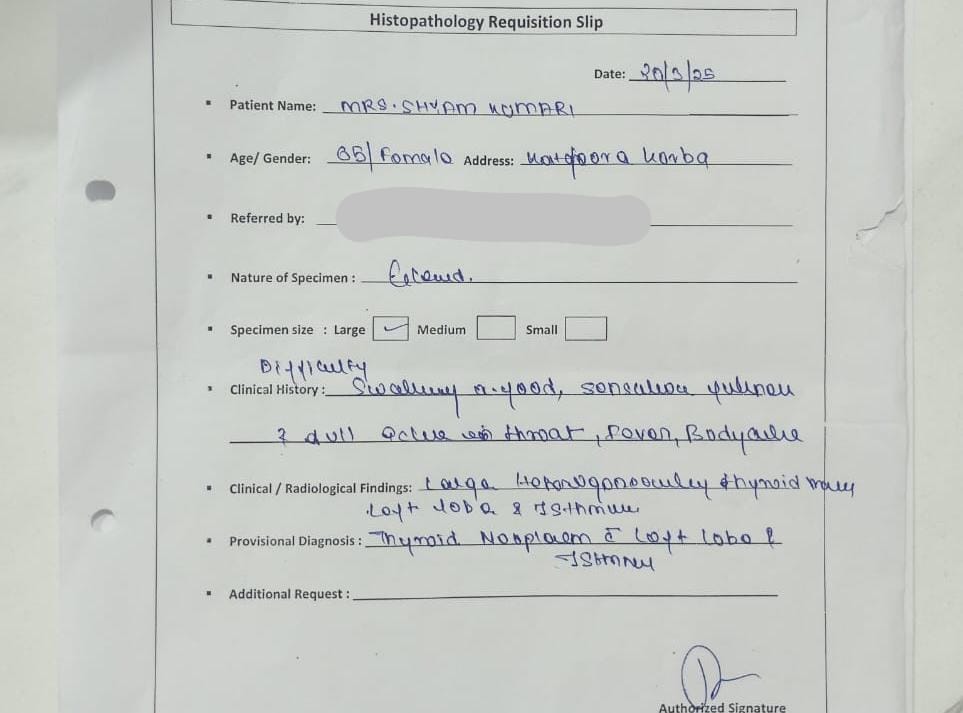 Histopathology Requisition Slip
Date: 20/3/25
Patient Name: MRS. SHYAM KUMARI
Age/ Gender: Female Address: Korba
Referred by:
Nature of Specimen :
Specimen size : Large Medium Small
Difficulty
Clinical History : n food, sensation fullness
& dull ache in throat, Fever, Bodyache
Clinical / Radiological Findings: Large thyroid mass
Left lobe & Isthmus
Provisional Diagnosis : Thyroid Neoplasm c̄ Left lobe &
Isthmus
Additional Request :
Authorized Signature